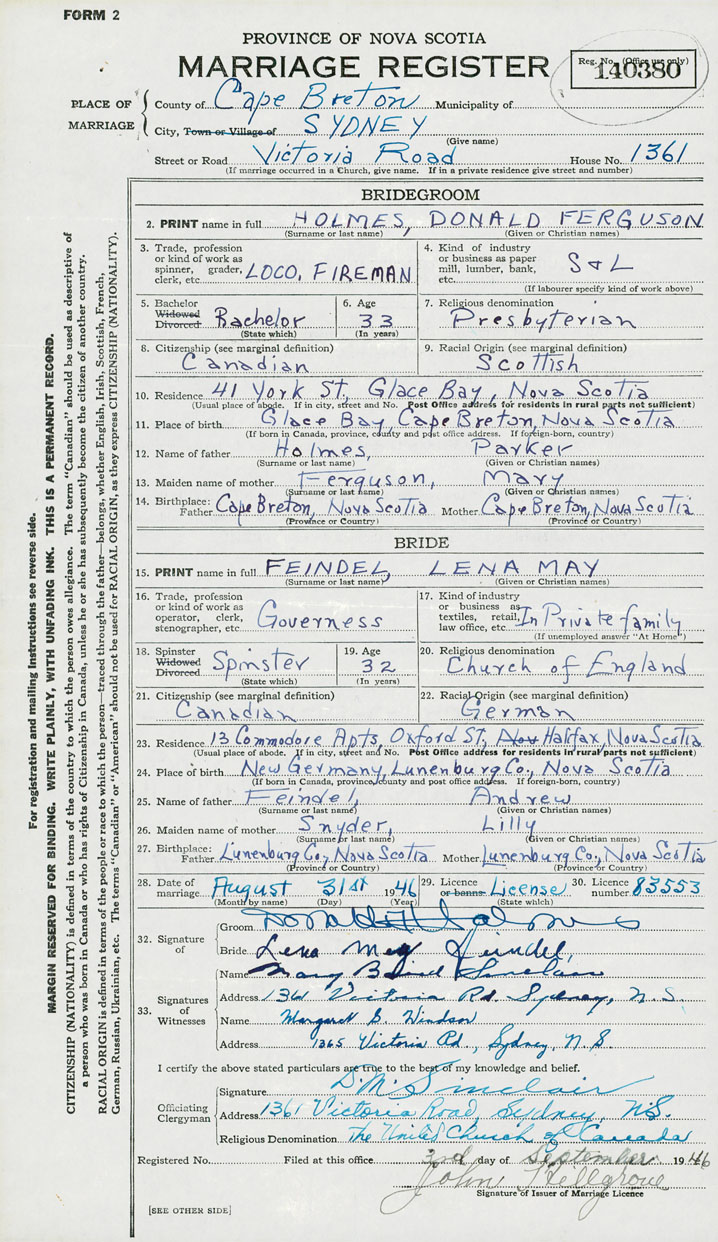 FORM 2
PROVINCE OF NOVA SCOTIA
MARRIAGE REGISTER
Reg. No. (Office use only)
140380
PLACE OF MARRIAGE
County of Cape Breton Municipality of
City, Town or Village of SYDNEY
(Give name)
Street or Road Victoria Road House No. 1361
(If marriage occurred in a Church, give name. If in a private residence give street and number)
BRIDEGROOM
2. PRINT name in full HOLMES, DONALD FERGUSON
(Surname or last name) (Given or Christian names)
3. Trade, profession or kind of work as spinner, grader, clerk, etc. LOCO, FIREMAN
4. Kind of industry or business as paper mill, lumber, bank, etc. S & L
(If labourer specify kind of work above)
5. Bachelor Widowed Divorced Bachelor
(State which)
6. Age 33
(In years)
7. Religious denomination
Presbyterian
8. Citizenship (see marginal definition)
Canadian
9. Racial Origin (see marginal definition)
Scottish
10. Residence 41 York St., Glace Bay, Nova Scotia
(Usual place of abode. If in city, street and No. Post Office address for residents in rural parts not sufficient)
11. Place of birth Glace Bay, Cape Breton, Nova Scotia
(If born in Canada, province, county and post office address. If foreign-born, country)
12. Name of father Holmes, Parker
(Surname or last name) (Given or Christian names)
13. Maiden name of mother Ferguson, Mary
(Surname or last name) (Given or Christian names)
14. Birthplace: Father Cape Breton, Nova Scotia Mother Cape Breton, Nova Scotia
(Province or Country) (Province or Country)
BRIDE
15. PRINT name in full FEINDEL, LENA MAY
(Surname or last name) (Given or Christian names)
16. Trade, profession or kind of work as operator, clerk, stenographer, etc. Governess
17. Kind of industry or business as textiles, retail, law office, etc. In Private family
(If unemployed answer "At Home")
18. Spinster Widowed Divorced Spinster
(State which)
19. Age 32
(In years)
20. Religious denomination
Church of England
21. Citizenship (see marginal definition)
Canadian
22. Racial Origin (see marginal definition)
German
23. Residence 13 Commodore Apts, Oxford St, Nov Halifax, Nova Scotia
(Usual place of abode. If in city, street and No. Post Office address for residents in rural parts not sufficient)
24. Place of birth New Germany, Lunenburg Co., Nova Scotia
(If born in Canada, province, county and post office address. If foreign-born, country)
25. Name of father Feindel, Andrew
(Surname or last name) (Given or Christian names)
26. Maiden name of mother Snyder, Lilly
(Surname or last name) (Given or Christian names)
27. Birthplace: Father Lunenburg Co., Nova Scotia Mother Lunenburg Co., Nova Scotia
(Province or Country) (Province or Country)
28. Date of marriage August 31st 1946
(Month by name) (Day) (Year)
29. Licence or banns License
(State which)
30. Licence number 83553
32. Signature of
Groom Donald F Holmes
Bride Lena May Feindel,
33. Signatures of Witnesses
Name Mary Sinclair
Address 1361 Victoria Rd. Sydney, N.S.
Name Margaret G. Windsor
Address 1365 Victoria Rd., Sydney, N.S.
I certify the above stated particulars are true to the best of my knowledge and belief.
Officiating Clergyman
Signature D. M. Sinclair
Address 1361 Victoria Road, Sydney, N.S.
Religious Denomination The United Church of Canada
Registered No. Filed at this office 3rd day of September 1946
John
Signature of Issuer of Marriage Licence
[SEE OTHER SIDE]
For registration and mailing instructions see reverse side.
MARGIN RESERVED FOR BINDING. WRITE PLAINLY, WITH UNFADING INK. THIS IS A PERMANENT RECORD.
CITIZENSHIP (NATIONALITY) is defined in terms of the country to which the person owes allegiance. The term "Canadian" should be used as descriptive of
a person who was born in Canada or who has rights of Citizenship in Canada, unless he or she has subsequently become the citizen of another country.
RACIAL ORIGIN is defined in terms of the people or race to which the person—traced through the father—belongs, whether English, Irish, Scottish, French,
German, Russian, Ukrainian, etc. The terms "Canadian" or "American" should not be used for RACIAL ORIGIN, as they express CITIZENSHIP (NATIONALITY).